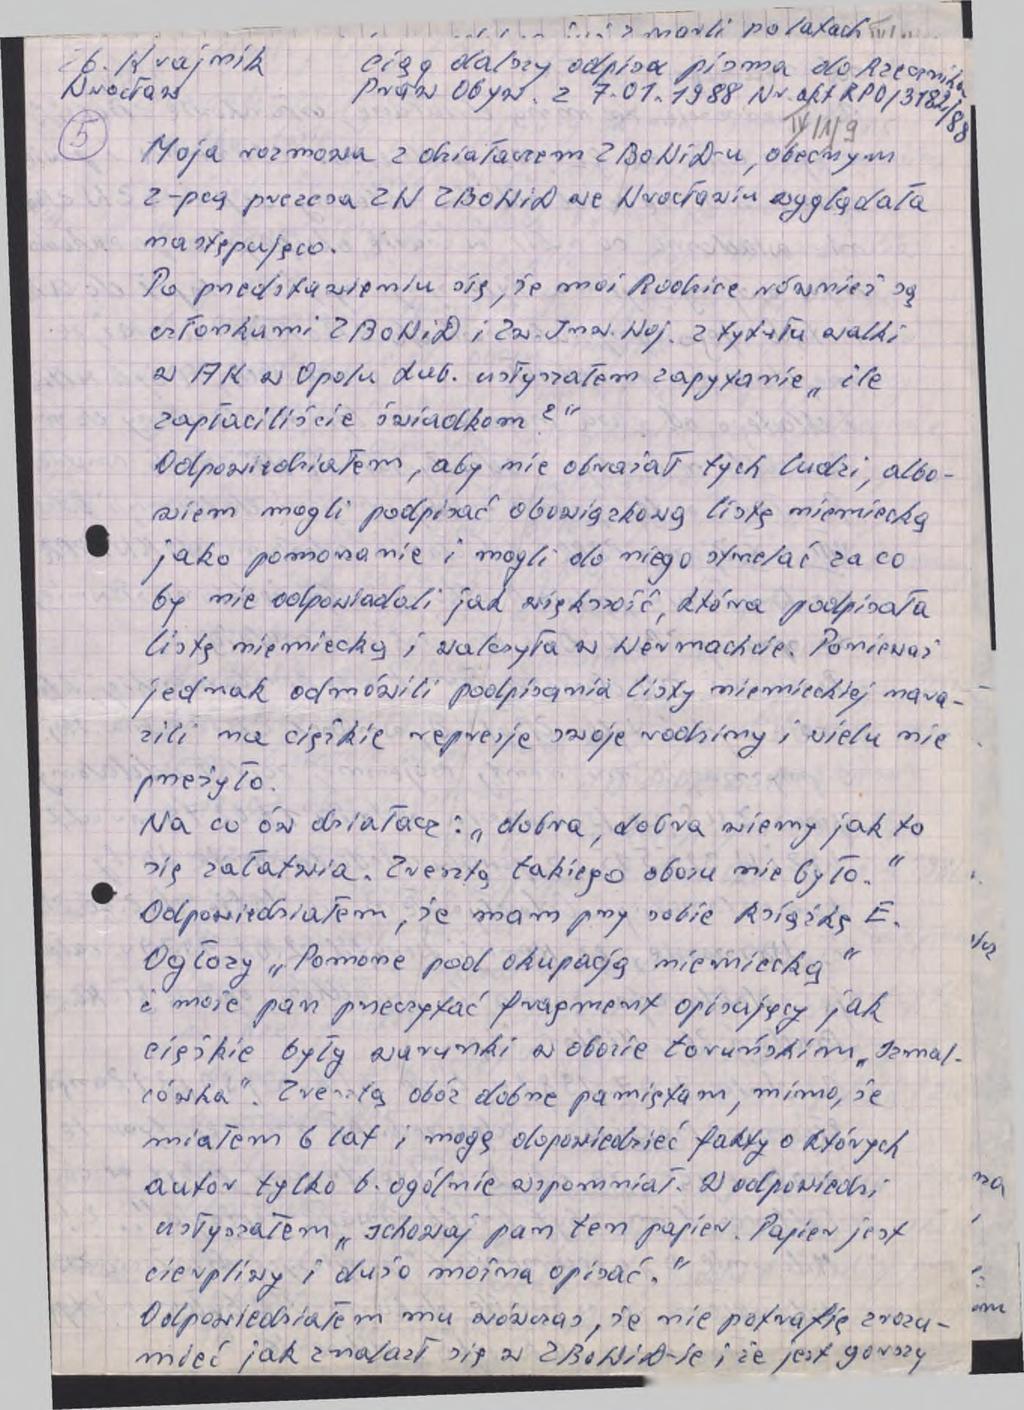 zmarli po latach
Zb. Krajnik ciąg dalszy odpisu pisma do Rzecznika
Wrocław Praw Obyw. z 7.01.1988 Nr akt RPO/3182/88
IV/1/9
5
Moja rozmowa z działaczem ZBoWiD-u, obecnym
z-pcą prezesa ZW ZBoWiD we Wrocławiu wyglądała
następująco.
Po przedstawieniu się, że moi Rodzice również są
członkami ZBoWiD i Zw. Inw. Woj. z tytułu walki
w AK w Opolu Lub. usłyszałem zapytanie „ile
zapłaciliście świadkom?"
Odpowiedziałem, aby nie obrażał tych ludzi, albo-
wiem mogli podpisać obowiązkową listę niemiecką
jako pomorzanie i mogli do niego strzelać za co
by nie odpowiadali jak większość, która podpisała
listę niemiecką i walczyła w Wermachcie. Ponieważ
jednak odmówili podpisania listy niemieckiej nara-
zili na ciężkie represje swoje rodziny i wielu nie
przeżyło.
Na co ów działacz: „dobra, dobra wiemy jak to
się załatwia. Zresztą takiego obozu nie było."
Odpowiedziałem, że mam przy sobie książkę E.
Ogłozy „Pomorze pod okupacją niemiecką"
i może pan przeczytać fragment opisujący jak
ciężkie były warunki w obozie toruńskim „Szmal-
cówka". Zresztą obóz dobrze pamiętam, mimo, że
miałem 6 lat i mogę dopowiedzieć fakty o których
autor tylko b. ogólnie wspomniał. W odpowiedzi
usłyszałem „schowaj pan ten papier. Papier jest
cierpliwy i dużo można opisać."
Odpowiedziałem mu wówczas, że nie potrafię zrozu-
mieć jak znalazł się w ZBoWiD-ie i że jest gorszy